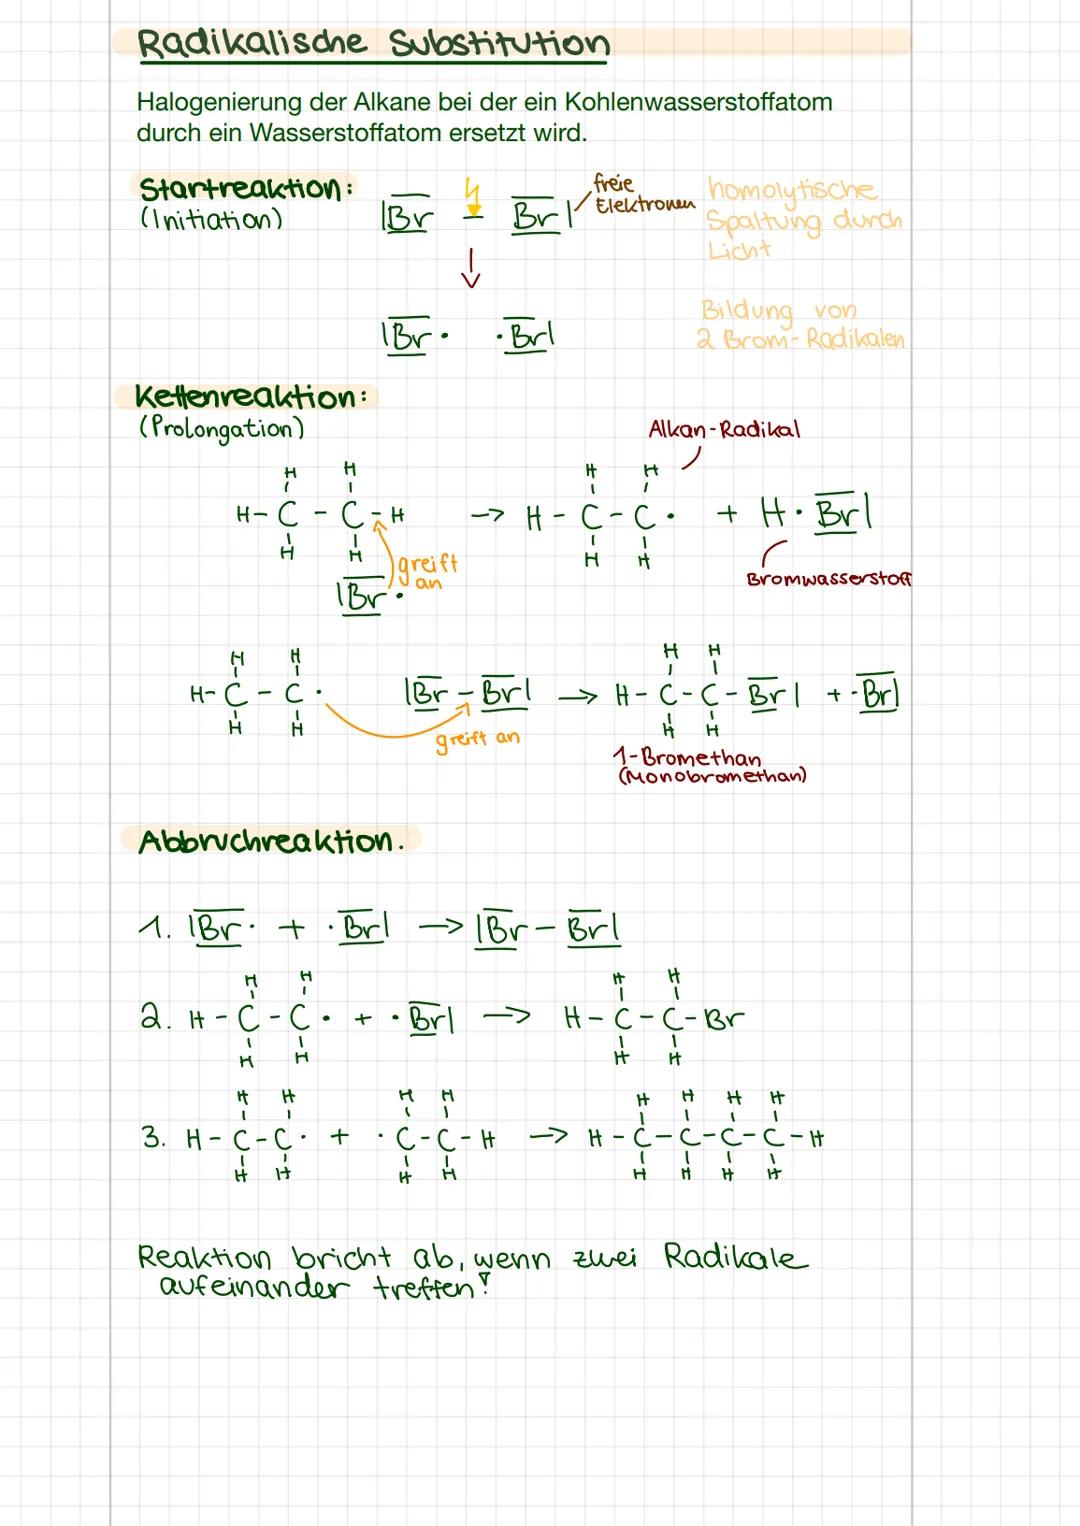 Radikalische Substitution
Halogenierung der Alkane bei der ein Kohlenwasserstoffatom
durch ein Wasserstoffatom ersetzt wird.
Startreaktion:
(Initiation)
|Br – Br|
freie
Elektronen
homolytische
Spaltung durch
Licht
↓
|Br · · Br|
Bildung von
2 Brom-Radikalen
Kettenreaktion:
(Prolongation)
Alkan-Radikal
H H H H
H - C - C - H → H - C - C · + H · Br|
H H H H
greift
an
|Br ·
Bromwasserstoff
H H H H
H - C - C · |Br - Br| → H - C - C - Br| + · Br|
H H H H
greift an
1-Bromethan
(Monobromethan)
Abbruchreaktion.
1. |Br · + · Br| → |Br - Br|
H H H H
2. H - C - C · + · Br| → H - C - C - Br
H H H H
H H H H H H H H
3. H - C - C · + · C - C - H → H - C - C - C - C - H
H H H H H H H H
Reaktion bricht ab, wenn zwei Radikale
aufeinander treffen!